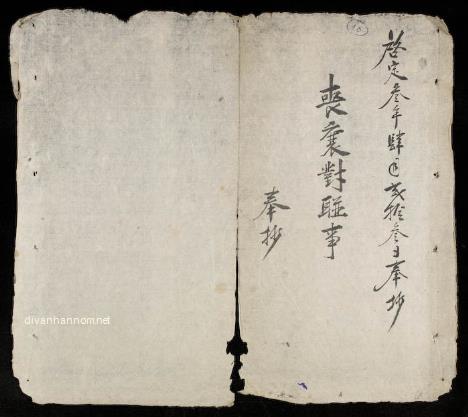 啓定叁年肆月弍拾叁日奉抄
喪襄對聯事
奉抄
divanhannom.net